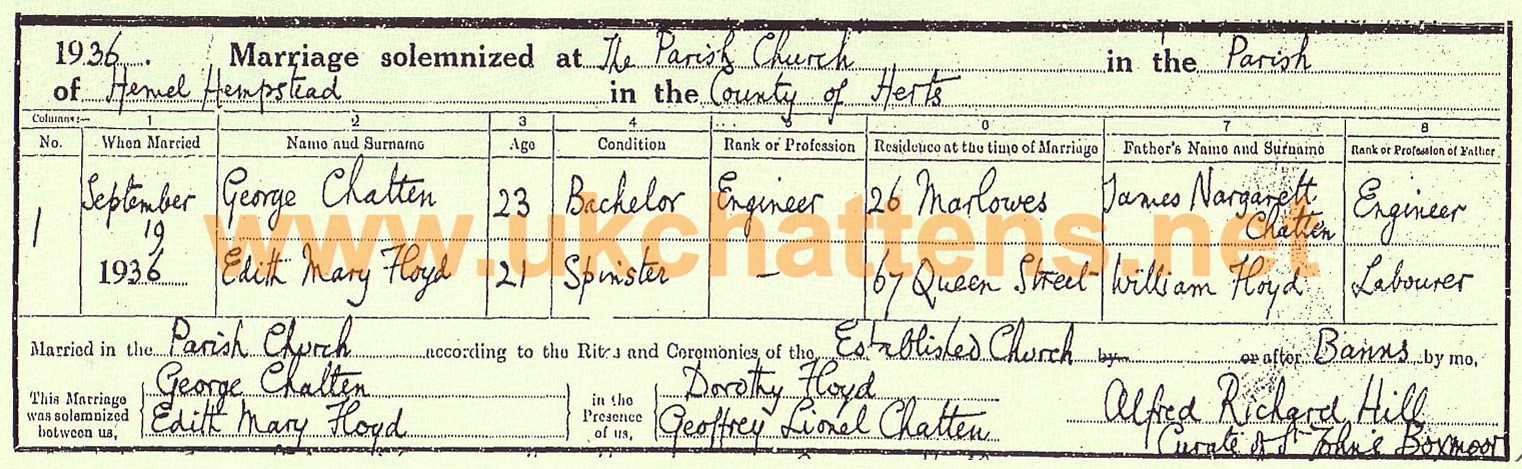 1936. Marriage solemnized at The Parish Church in the Parish
of Hemel Hempstead in the County of Herts
Columns:— 1 2 3 4 5 6 7 8
No. When Married Name and Surname Age Condition Rank or Profession Residence at the time of Marriage Father's Name and Surname Rank or Profession of Father
1 September 19 1936 George Chatten 23 Bachelor Engineer 26 Marlowes James Nargarett Chatten Engineer
Edith Mary Floyd 21 Spinster — 67 Queen Street William Floyd Labourer
www.ukchattens.net
Married in the Parish Church according to the Rites and Ceremonies of the Established Church by or after Banns by me,
This Marriage was solemnized between us, George Chatten Edith Mary Floyd in the Presence of us, Dorothy Floyd Geoffrey Lionel Chatten Alfred Richard Hill
Curate of St John's Boxmoor